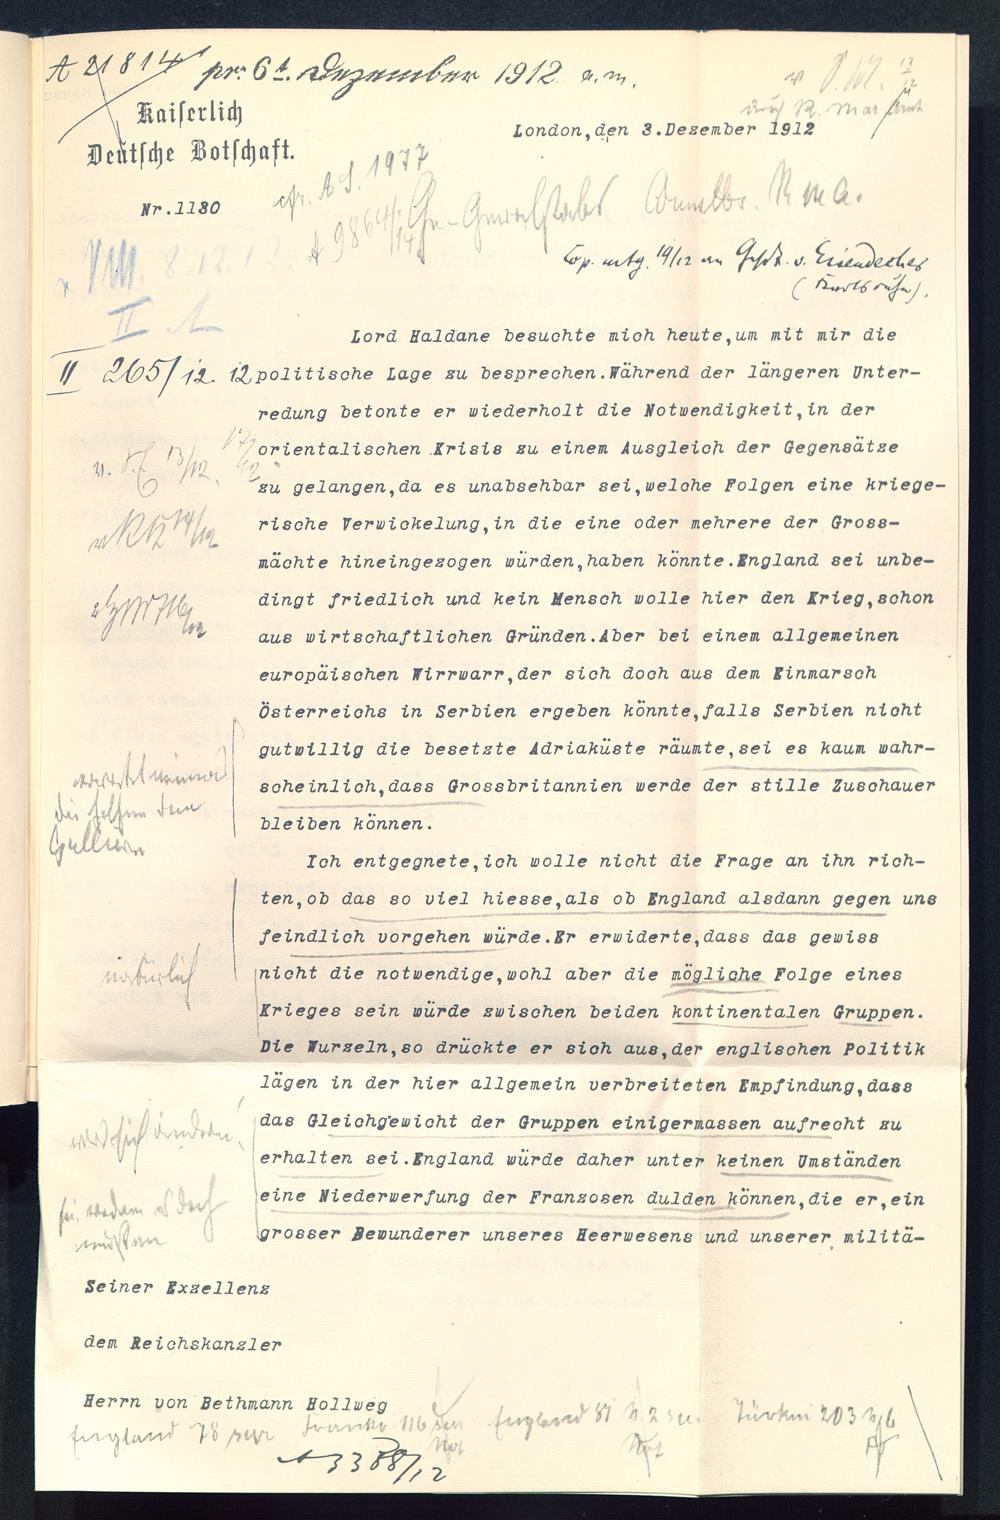 A 21814 pr. 6t. Dezember 1912 a.m.
Kaiserlich
Deutsche Botschaft.
London,den 3.Dezember 1912
Nr.1180
A S. 1977
A 9864/14
Cop. mtg. 14/12 an Gesdt. v. Eisendecher
(Karlsruhe).
8.12.12
II
II 265/12. 12
Lord Haldane besuchte mich heute,um mit mir die
politische Lage zu besprechen.Während der längeren Unter-
redung betonte er wiederholt die Notwendigkeit,in der
orientalischen Krisis zu einem Ausgleich der Gegensätze
zu gelangen,da es unabsehbar sei,welche Folgen eine kriege-
rische Verwickelung,in die eine oder mehrere der Gross-
mächte hineingezogen würden,haben könnte.England sei unbe-
dingt friedlich und kein Mensch wolle hier den Krieg,schon
aus wirtschaftlichen Gründen.Aber bei einem allgemeinen
europäischen Wirrwarr,der sich doch aus dem Einmarsch
Österreichs in Serbien ergeben könnte,falls Serbien nicht
gutwillig die besetzte Adriaküste räumte,sei es kaum wahr-
scheinlich,dass Grossbritannien werde der stille Zuschauer
bleiben können.
die helfen den
Galliern
Ich entgegnete,ich wolle nicht die Frage an ihn rich-
ten,ob das so viel hiesse,als ob England alsdann gegen uns
feindlich vorgehen würde.Er erwiderte,dass das gewiss
nicht die notwendige,wohl aber die mögliche Folge eines
Krieges sein würde zwischen beiden kontinentalen Gruppen.
Die Wurzeln,so drückte er sich aus,der englischen Politik
lägen in der hier allgemein verbreiteten Empfindung,dass
das Gleichgewicht der Gruppen einigermassen aufrecht zu
erhalten sei.England würde daher unter keinen Umständen
eine Niederwerfung der Franzosen dulden können,die er,ein
grosser Bewunderer unseres Heerwesens und unserer militä-
natürlich
wird sich ändern!
sie werden es doch
müssen
Seiner Exzellenz
dem Reichskanzler
Herrn von Bethmann Hollweg
England 78 Frankr 116 England 81 Türkei 203
A 3388/12